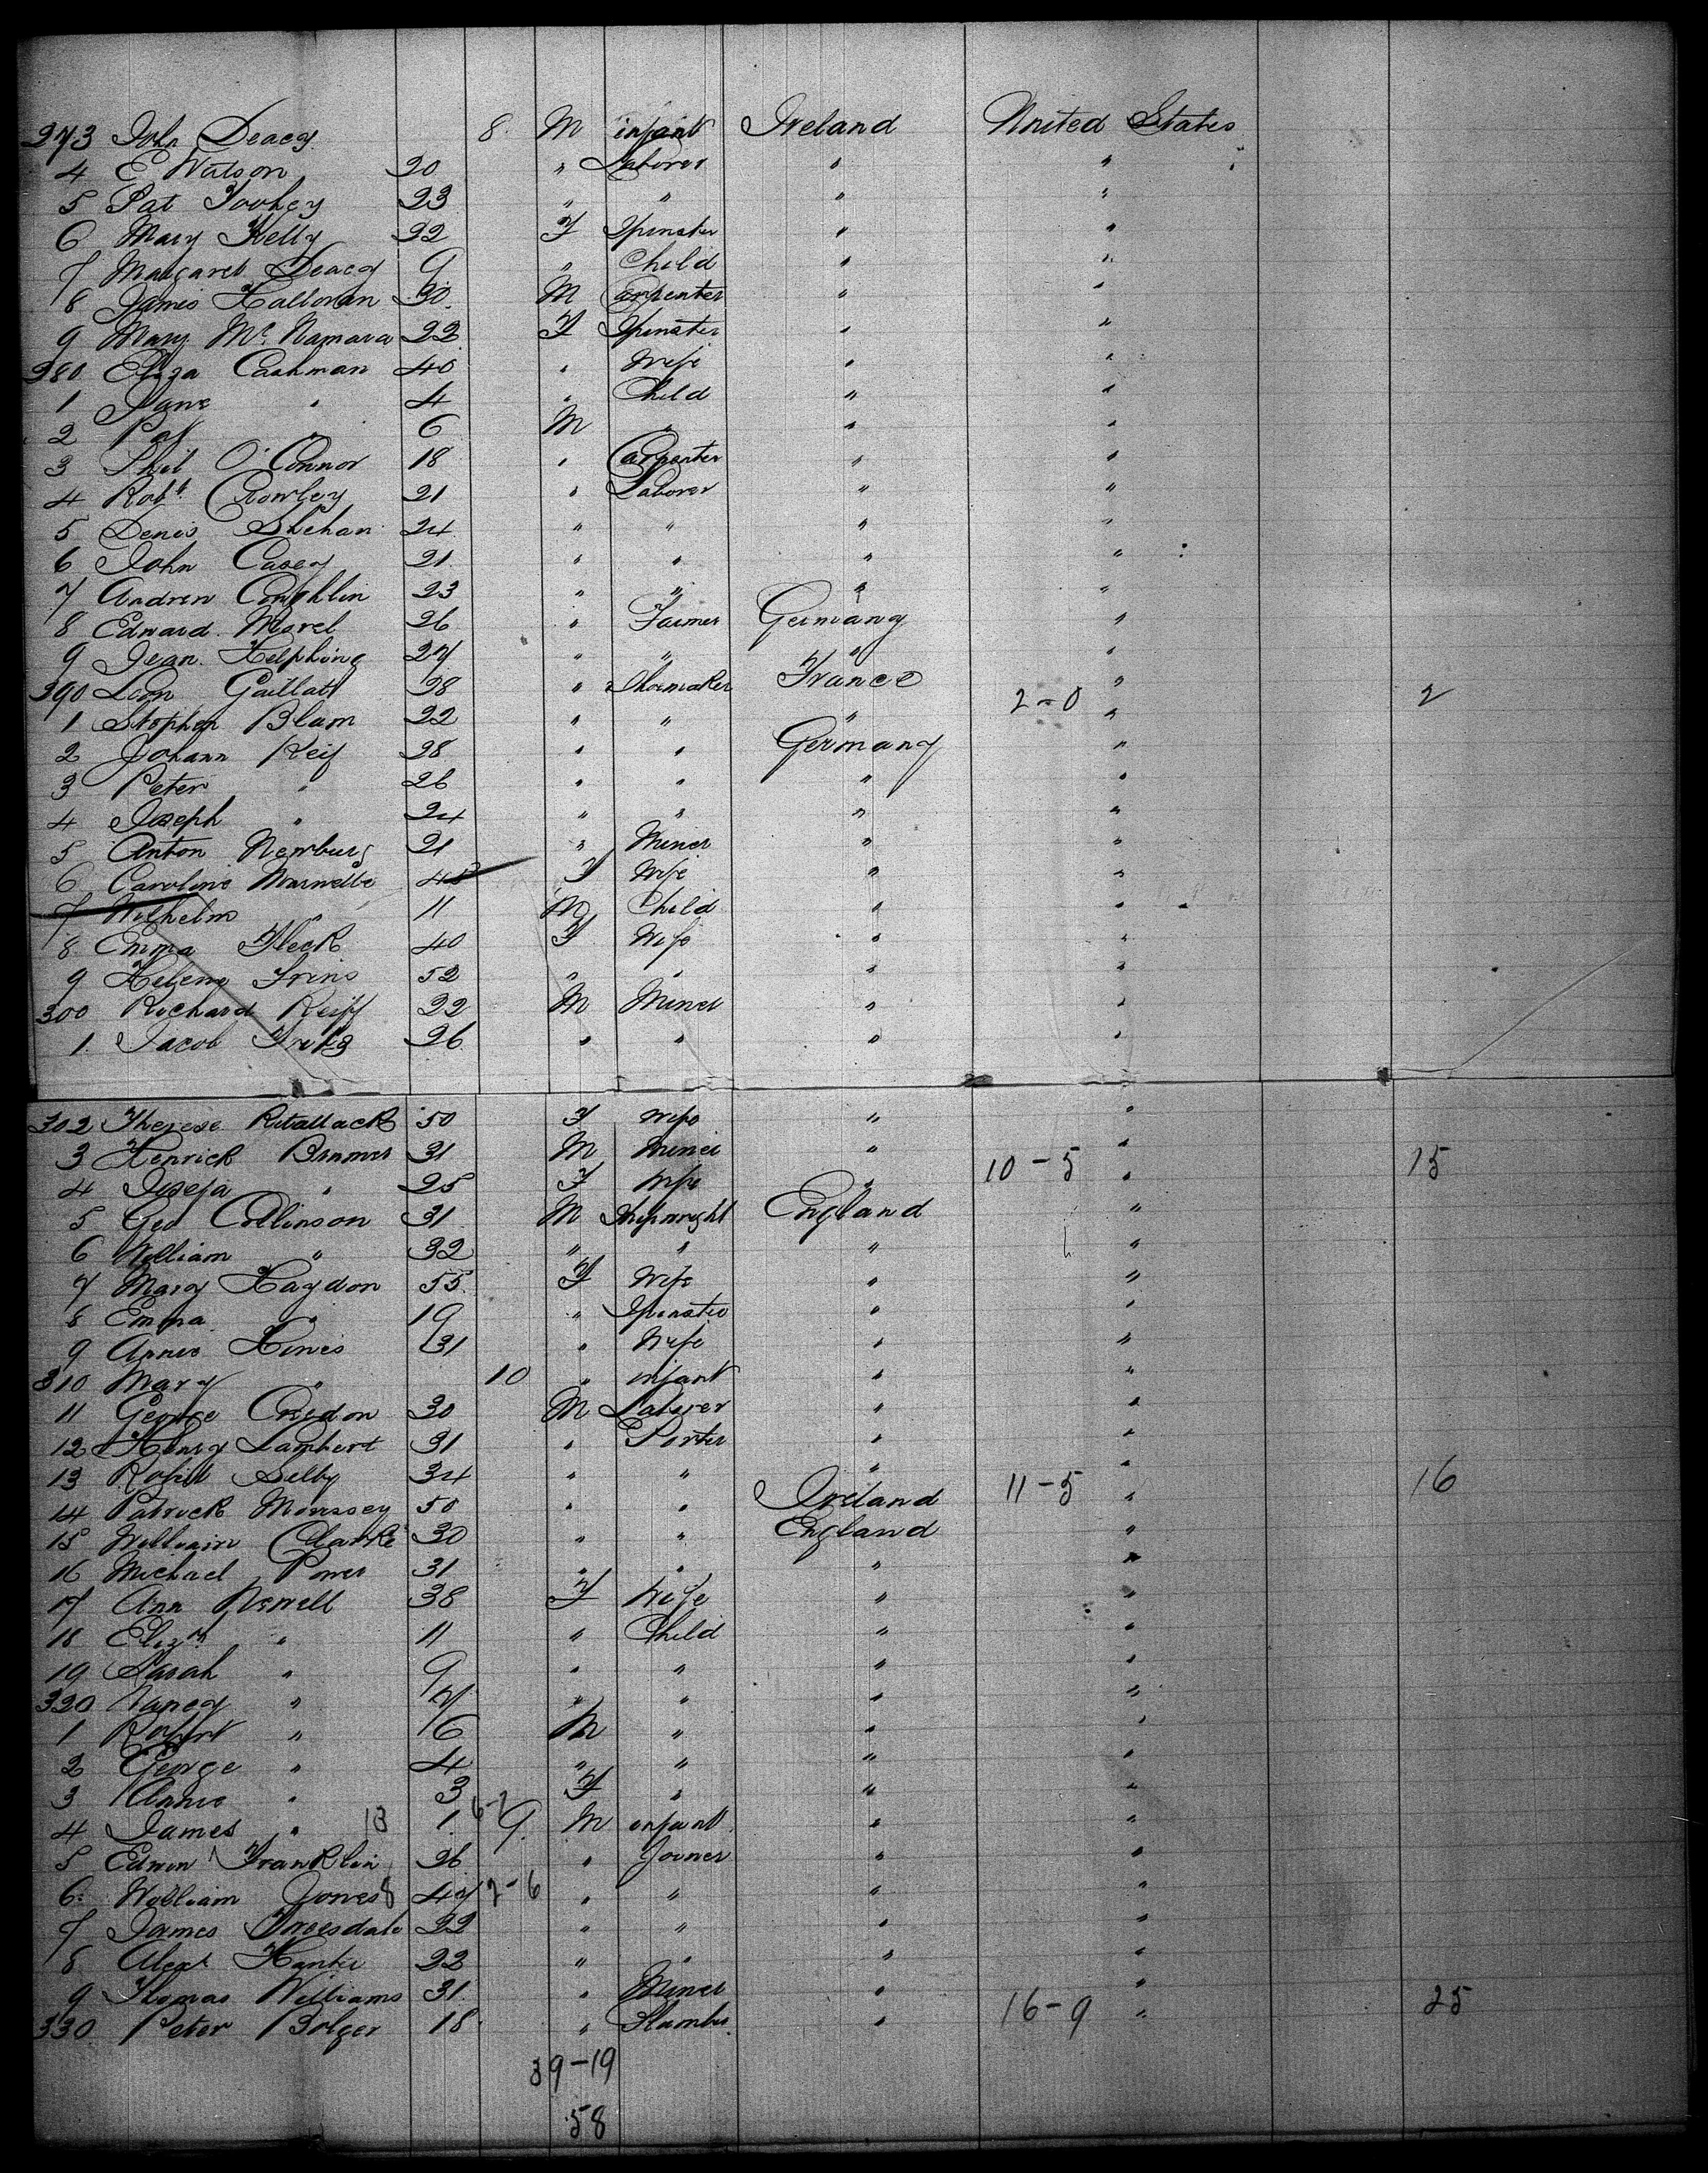 273 John Deacy 8 M infant Ireland United States
4 E Watson 20 " Laborer " "
5 Pat Toohey 23 " " " "
6 Mary Kelly 22 F Spinster " "
7 Margaret Deacy 9 " Child " "
8 James Halloran 30 M Carpenter " "
9 Mary Mc Namara 22 F Spinster " "
280 Eliza Cashman 40 " Wife " "
1 Jane " 4 " Child " "
2 Pat " 6 M " " "
3 Phil O'Connor 18 " Carpenter " "
4 Robt. Crowley 21 " Laborer " "
5 Denis Shehan 24 " " " "
6 John Casey 21 " " " "
7 Andrew Coughlin 23 " " " "
8 Edward Morel 26 " Farmer Germany "
9 Jean 27 " " " "
390 Leon Gaillatt 28 " Shoemaker France 2-0 " 2
1 Stephen Blam 22 " " " "
2 Johann Reif 28 " " Germany "
3 Peter " 26 " " " "
4 Joseph " 24 " " " "
5 Anton Newburg 21 " Miner " "
6 Caroline 45 F Wife " "
7 Wilhelm " 11 M Child " "
8 Emma Fleck 40 F Wife " "
9 Helene 52 " " " "
300 Richard Reiff 22 M Miner " "
1 Jacob 26 " " " "
302 Therese Retallack 50 F Wife " "
3 Henrick 31 M Miner " 10-5 " 15
4 Josefa " 25 F Wife " "
5 Geo Collinson 31 M Shipwright England "
6 William " 32 " " " "
7 Mary Haydon 55 F Wife " "
8 Emma " 19 " Spinster " "
9 Annie Hines 31 " Wife " "
310 Mary " 10 " infant " "
11 George Credon 30 M Laborer " "
12 Henry Lambert 31 " Porter " "
13 Robert Selby 34 " " " "
14 Patrick Morissey 50 " " Ireland 11-5 " 16
15 William Clarke 30 " " England "
16 Michael Power 31 " " " "
17 Ann Newell 38 F Wife " "
18 Elizth " 11 " Child " "
19 Sarah " 9 " " " "
320 Nancy " 7 " " " "
1 Robert " 6 M " " "
2 George " 4 " " " "
3 Annie " 3 F " " "
4 James " 13 1 6-7 9 M infant " "
5 Edwin Franklin 26 " Joiner " "
6 William Jones 8 47 2-6 " " " "
7 James 22 " " " "
8 Alext 22 " " " "
9 Thomas Williams 31 " Miner " "
330 Peter Bolger 18 " Plumber " 16-9 " 25
39-19
58